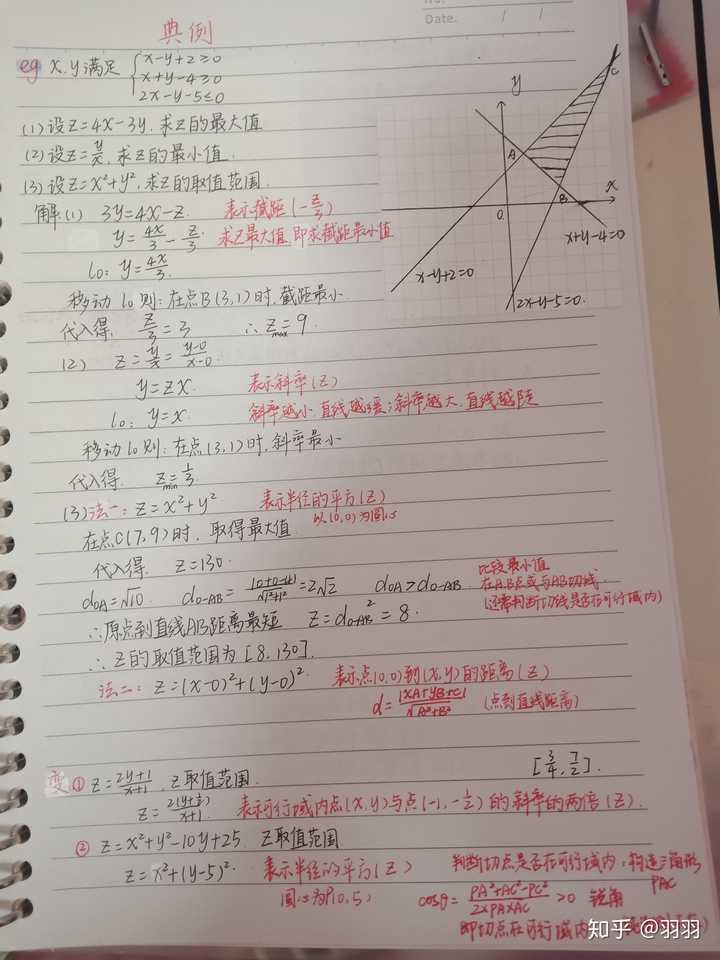 No.
Date.    /    /
典例
eg x.y满足 { x-y+2≥0
x+y-4≥0
2x-y-5≤0
(1)设z=4x-3y,求z的最大值
(2)设z=y/x,求z的最小值.
(3)设z=x²+y²,求z的取值范围.
解:(1) 3y=4x-z. 表示截距(-z/3)
y=4x/3-z/3. 求z最大值,即求截距最小值
l₀:y=4x/3.
移动l₀则:在点B(3,1)时,截距最小.
代入得. z/3=3 ∴z max=9.
y
C
A
B
x
O
x+y-4=0
x-y+2=0
2x-y-5=0.
(2) z=y/x=(y-0)/(x-0)
y=zx. 表示斜率(z)
l₀:y=x. 斜率越小,直线越缓;斜率越大,直线越陡
移动l₀则:在点(3,1)时,斜率最小
代入得. z min=1/3.
(3)法一:z=x²+y² 表示半径的平方(z)
以(0,0)为圆心
在点C(7,9)时,取得最大值.
代入得 z=130.
dOA=√10. dO-AB=|0+0-4|/√1²+1²=2√2 dOA>dO-AB.
比较最小值
在A.B点或与AB切线.
(还需判断切线是否在可行域内)
∴原点到直线AB距离最短 z=dO-AB²=8.
∴z的取值范围为[8,130].
法二:z=(x-0)²+(y-0)². 表示点(0,0)到(x,y)的距离(z)
d=|XA+YB+C|/√A²+B² (点到直线距离)
变①z=(2y+1)/(x+1),z取值范围. [3/4,7/2].
z=2(y+½)/(x+1). 表示可行域内点(x,y)与点(-1,-½)的斜率的两倍(z).
②z=x²+y²-10y+25. z取值范围.
z=x²+(y-5)². 表示半径的平方(z) 判断切点是否在可行域内,构造三角形
PAC
圆心为P(0,5) cosθ=(PA²+AC²-PC²)/(2×PA×AC)>0 锐角
即切点在可行域内
知乎 @羽羽